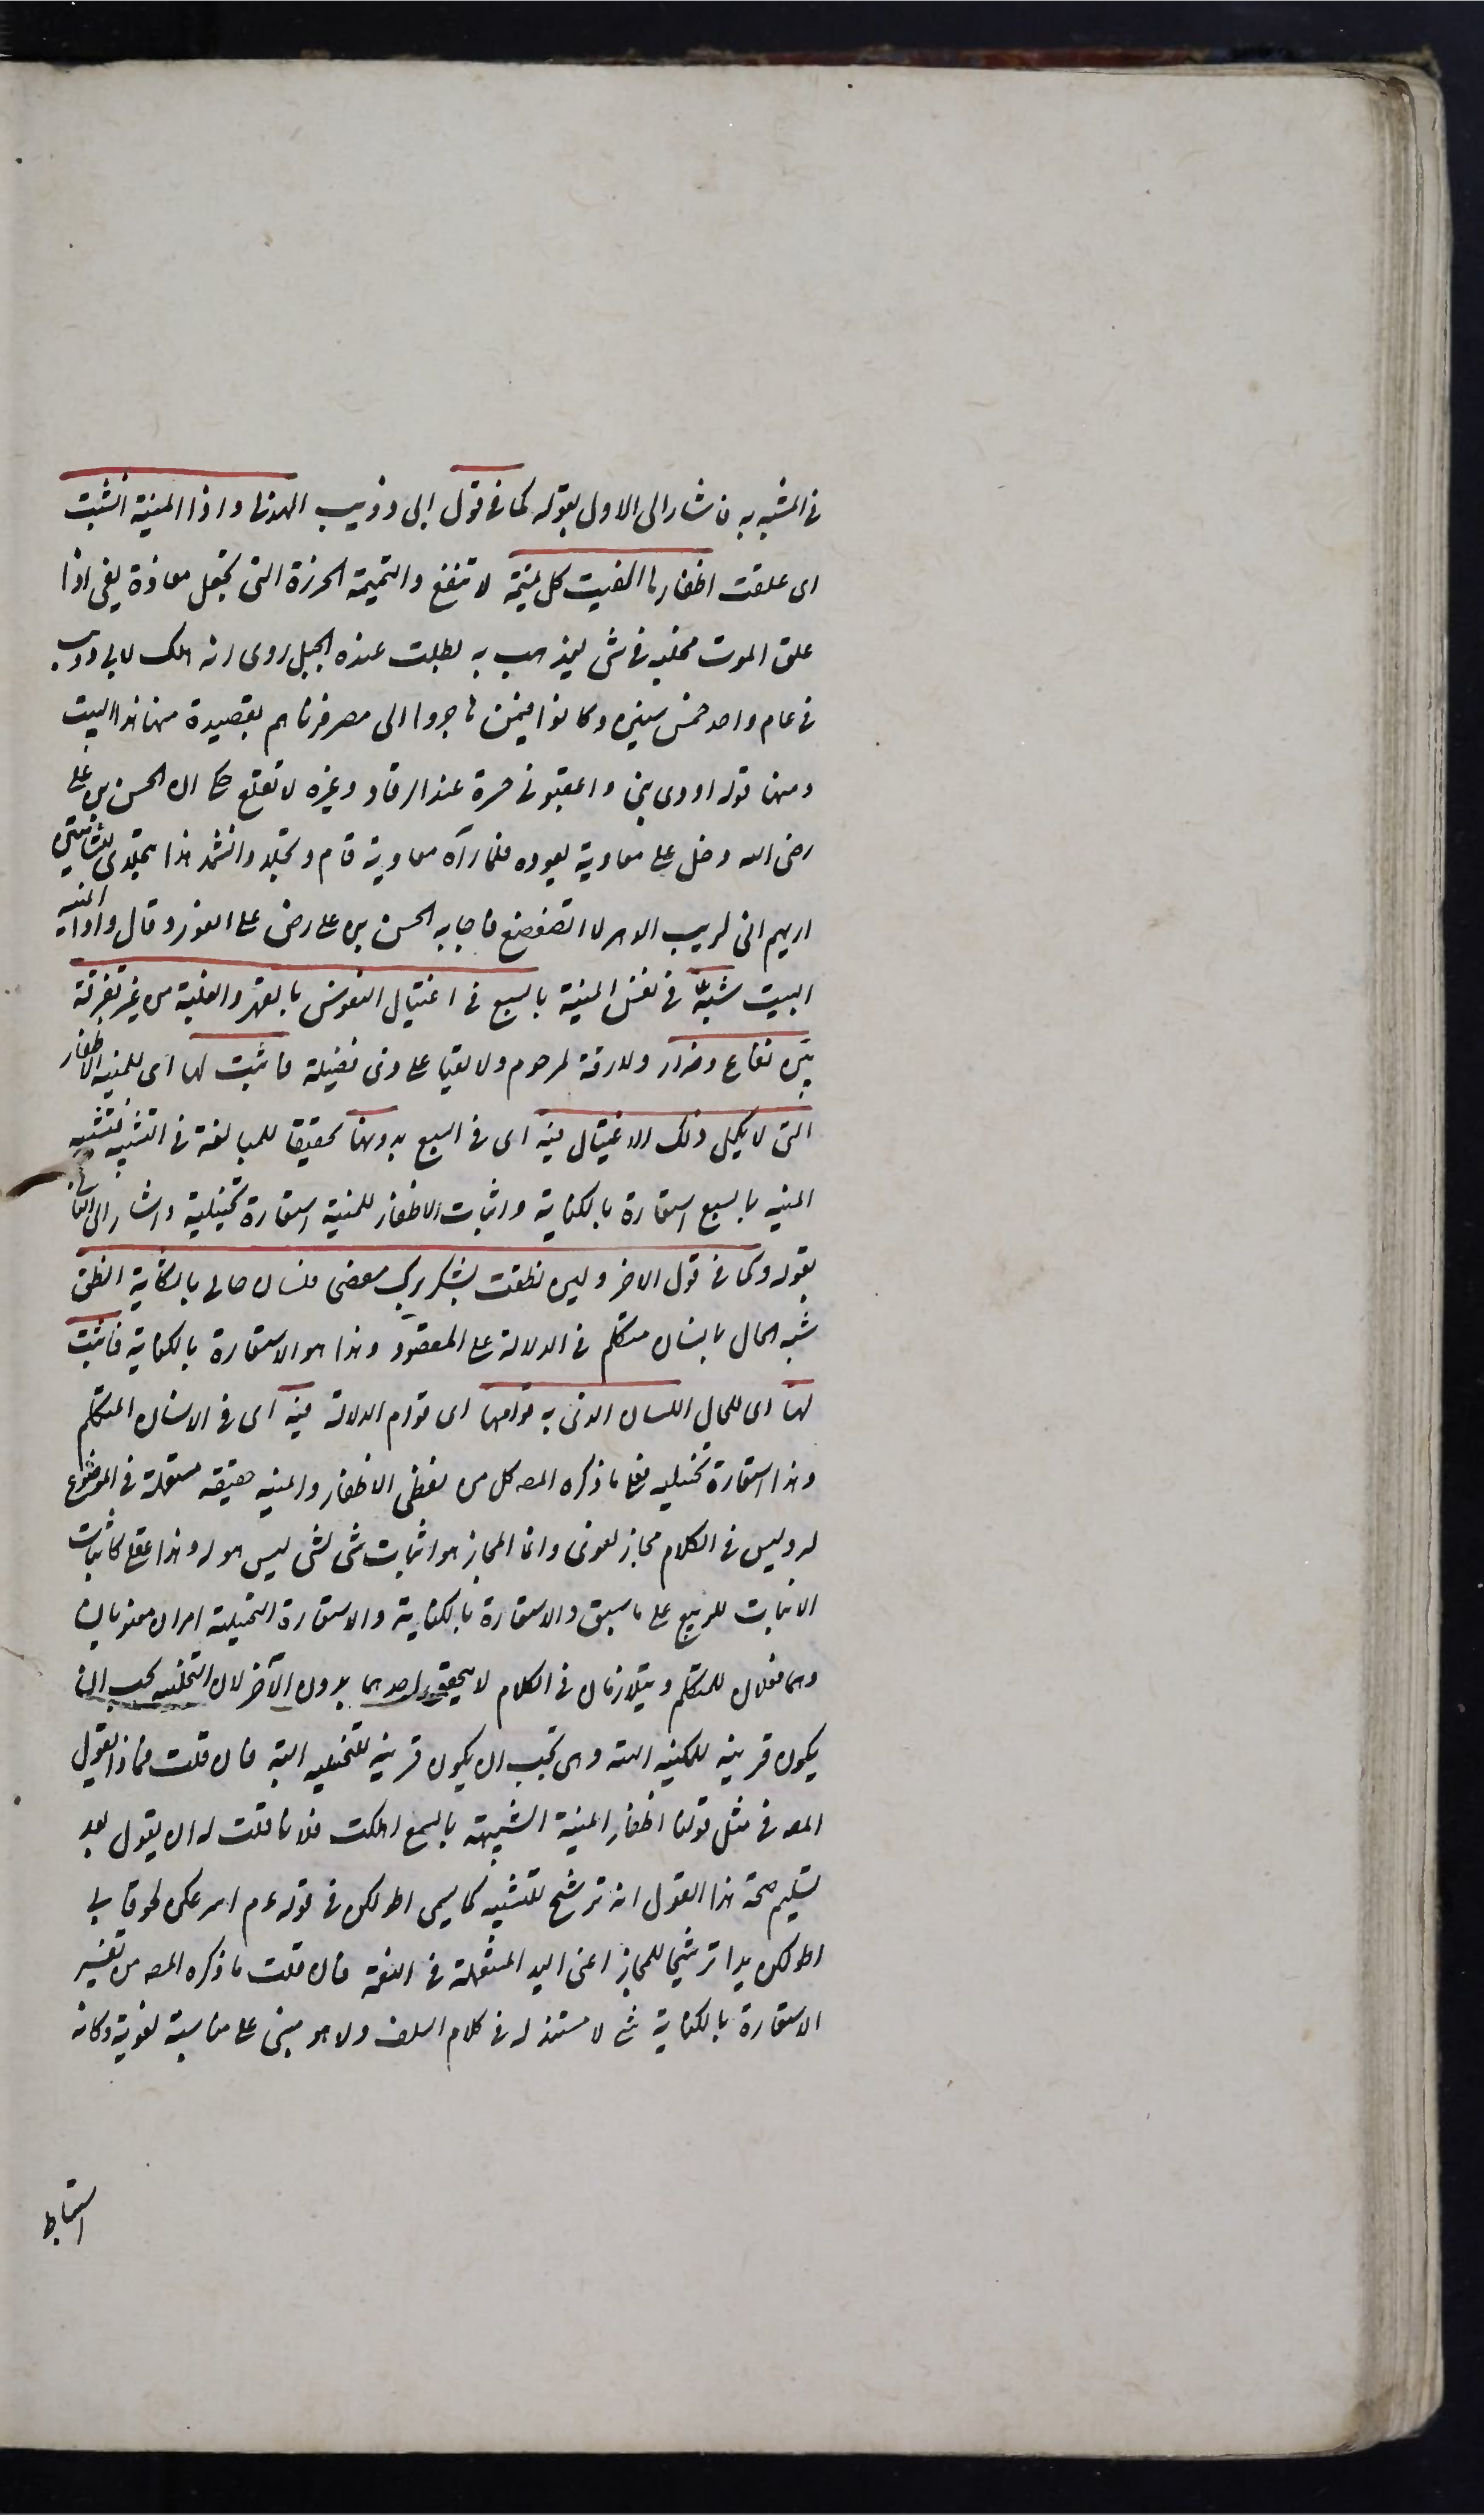 فى المشبه به فاشار الى الاول بقوله كما فى قول ابى ذؤيب الهذلى واذا المنية انشبت
اى علقت اظفارها الفيت كل تميمة لا تنفع والتميمة الخرزة التى تجعل معاذة يعنى اذا
علق الموت مخلبه فى شئ ليذهب به بطلت عنده الحيل روى انه هلك لابى ذؤيب
فى عام واحد خمس بنين وكانوا فيمن هاجروا الى مصر فرثاهم بقصيدة منها هذا البيت
ومنها قوله اودى بنى واعقبونى حسرة عند الرقاد وعبرة لا تقلع حكى ان الحسن بن على
رضى الله دخل على معاوية يعوده فلما رآه معاوية قام وتجلد وانشد هذا بتجلدى للشامتين
اريهم انى لريب الدهر لا اتضعضع فاجابه الحسن بن على رض على الفور وقال واذا المنية
البيت شبه فى نفس المنية بالسبع فى اغتيال النفوس بالقهر والغلبة من غير تفرقة
بين نفاع وضرار ولا رقة لمرحوم ولا بقيا على ذى فضيلة فاثبت لها اى للمنية الاظفار
التى لا يكمل ذلك الاغتيال فيه اى فى السبع بدونها تحقيقا للمبالغة فى التشبيه فتشبيه
المنية بالسبع استعارة بالكناية واثبات الاظفار للمنية استعارة تخييلية واشار الى الثانى
بقوله وكما فى قول الاخر ولين نطقت بشكر برك مفصحى فلسان حالى بالشكاية انطق
شبه الحال بانسان متكلم فى الدلالة على المقصود وهذا هو الاستعارة بالكناية فاثبت
لها اى للحال اللسان الذى به قوامها اى قوام الدلالة فيه اى فى الانسان المتكلم
وهذا استعارة تخييليه فعلى ما ذكره المصه كل من لفظى الاظفار والمنيه حقيقه مستعملة فى الموضوع
له وليس فى الكلام مجاز لغوى وانما المجاز هو اثبات شئ لشئ ليس هو له وهذا عقلى كاثبات
الانبات للربيع على ما سبق والاستعارة بالكناية والاستعارة التخييلية امران معنويان
وهما فعلان للمتكلم ويتلازمان فى الكلام لا يتحقق احدهما بدون الآخر لان التخييليه يجب ان
يكون قرينه للمكنيه البته وهى تجب ان يكون قرينه للتخييليه البتة فان قلت فماذا يقول
المصه فى مثل قولنا اظفار المنية الشبيهة بالسبع اهلكت فلانا قلت له ان يقول بعد
تسليم صحة هذا القول انه ترشيح للتشبيه كما يسمى اطولكن فى قوله عم اسرعكن لحوقا بى
اطولكن يدا ترشيحا للمجاز اعنى اليد المستعملة فى النعمة فان قلت ما ذكره المصه من تفسير
الاستعارة بالكناية شئ لا مستند له فى كلام السلف ولا هو مبنى على مناسبة لغوية وكانه
استنباط